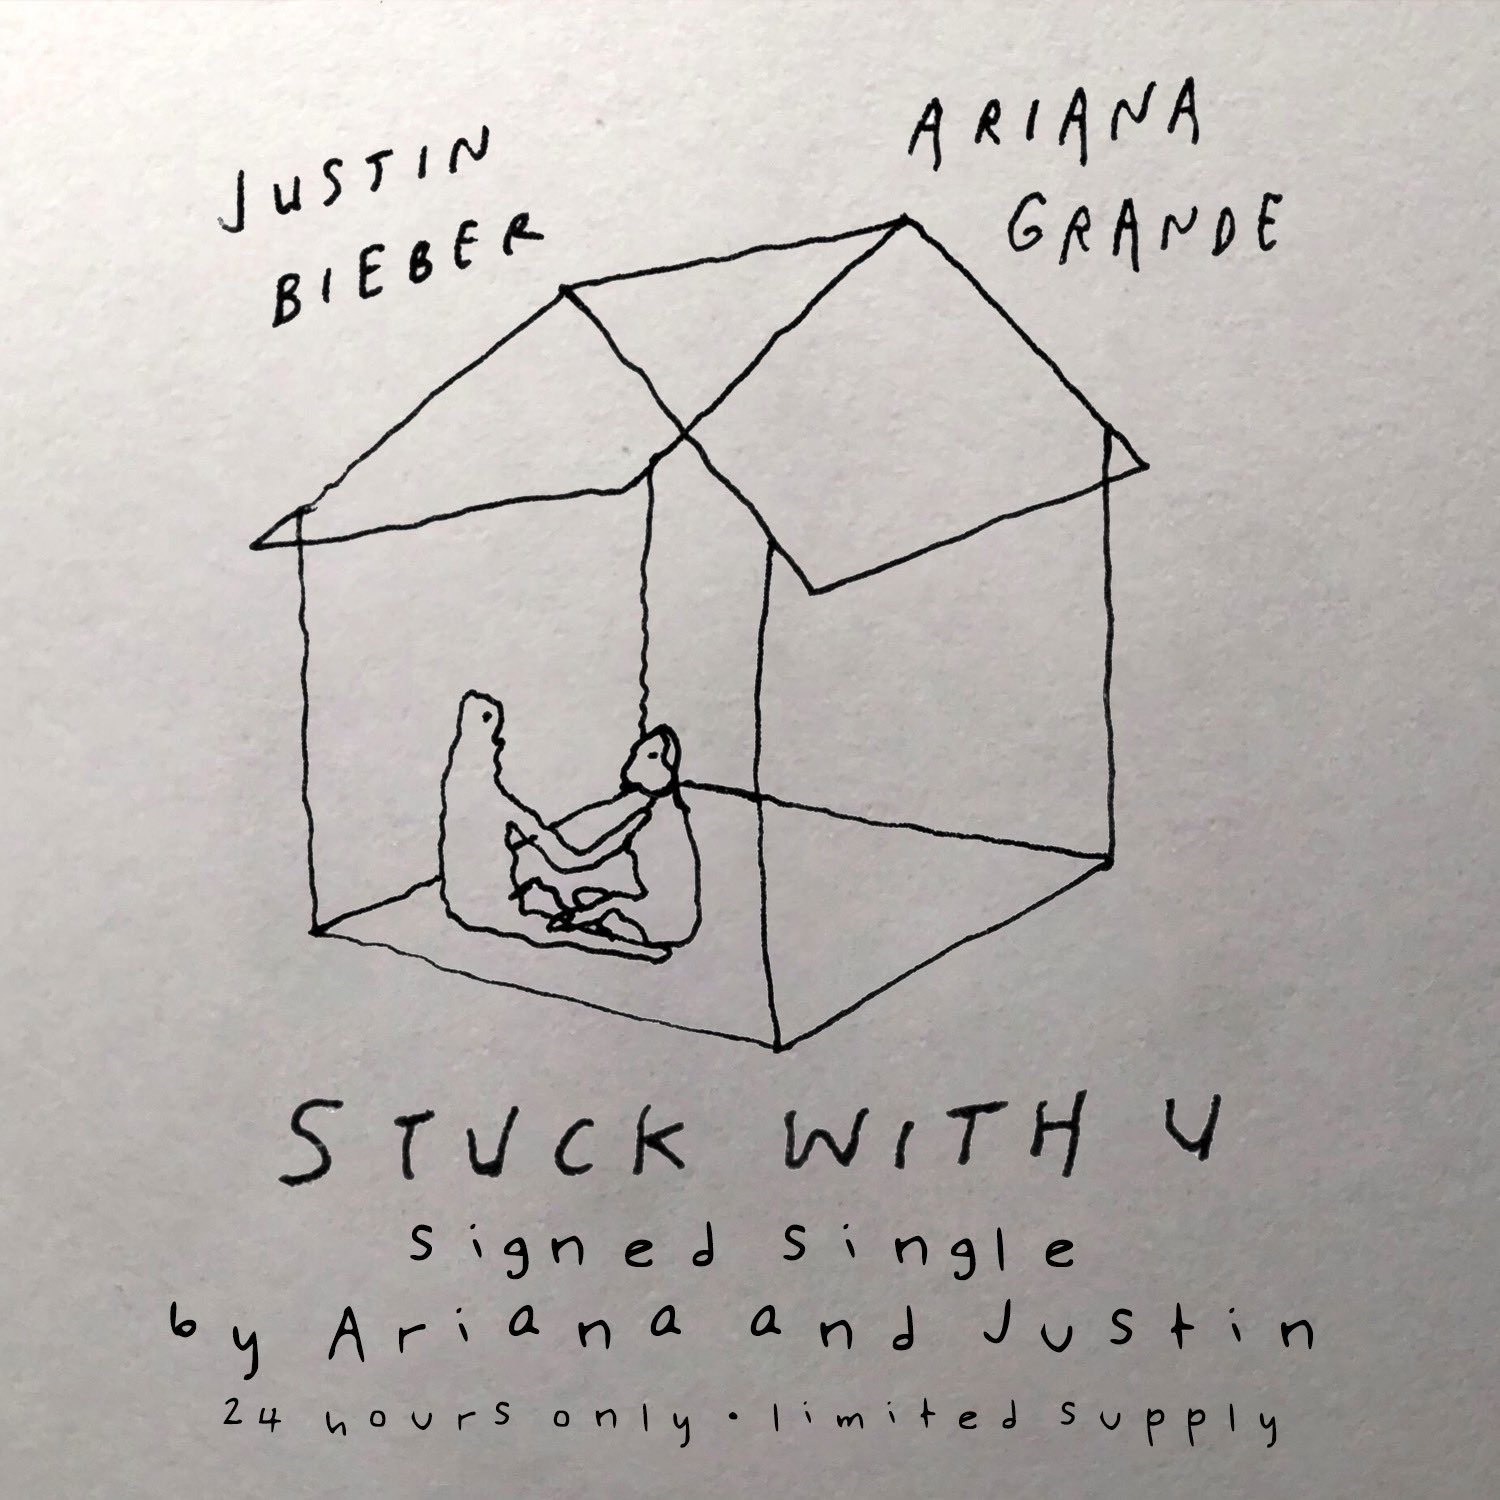 JUSTIN
BIEBER
ARIANA
GRANDE
STUCK WITH U
signed single
by Ariana and Justin
24 hours only • limited supply